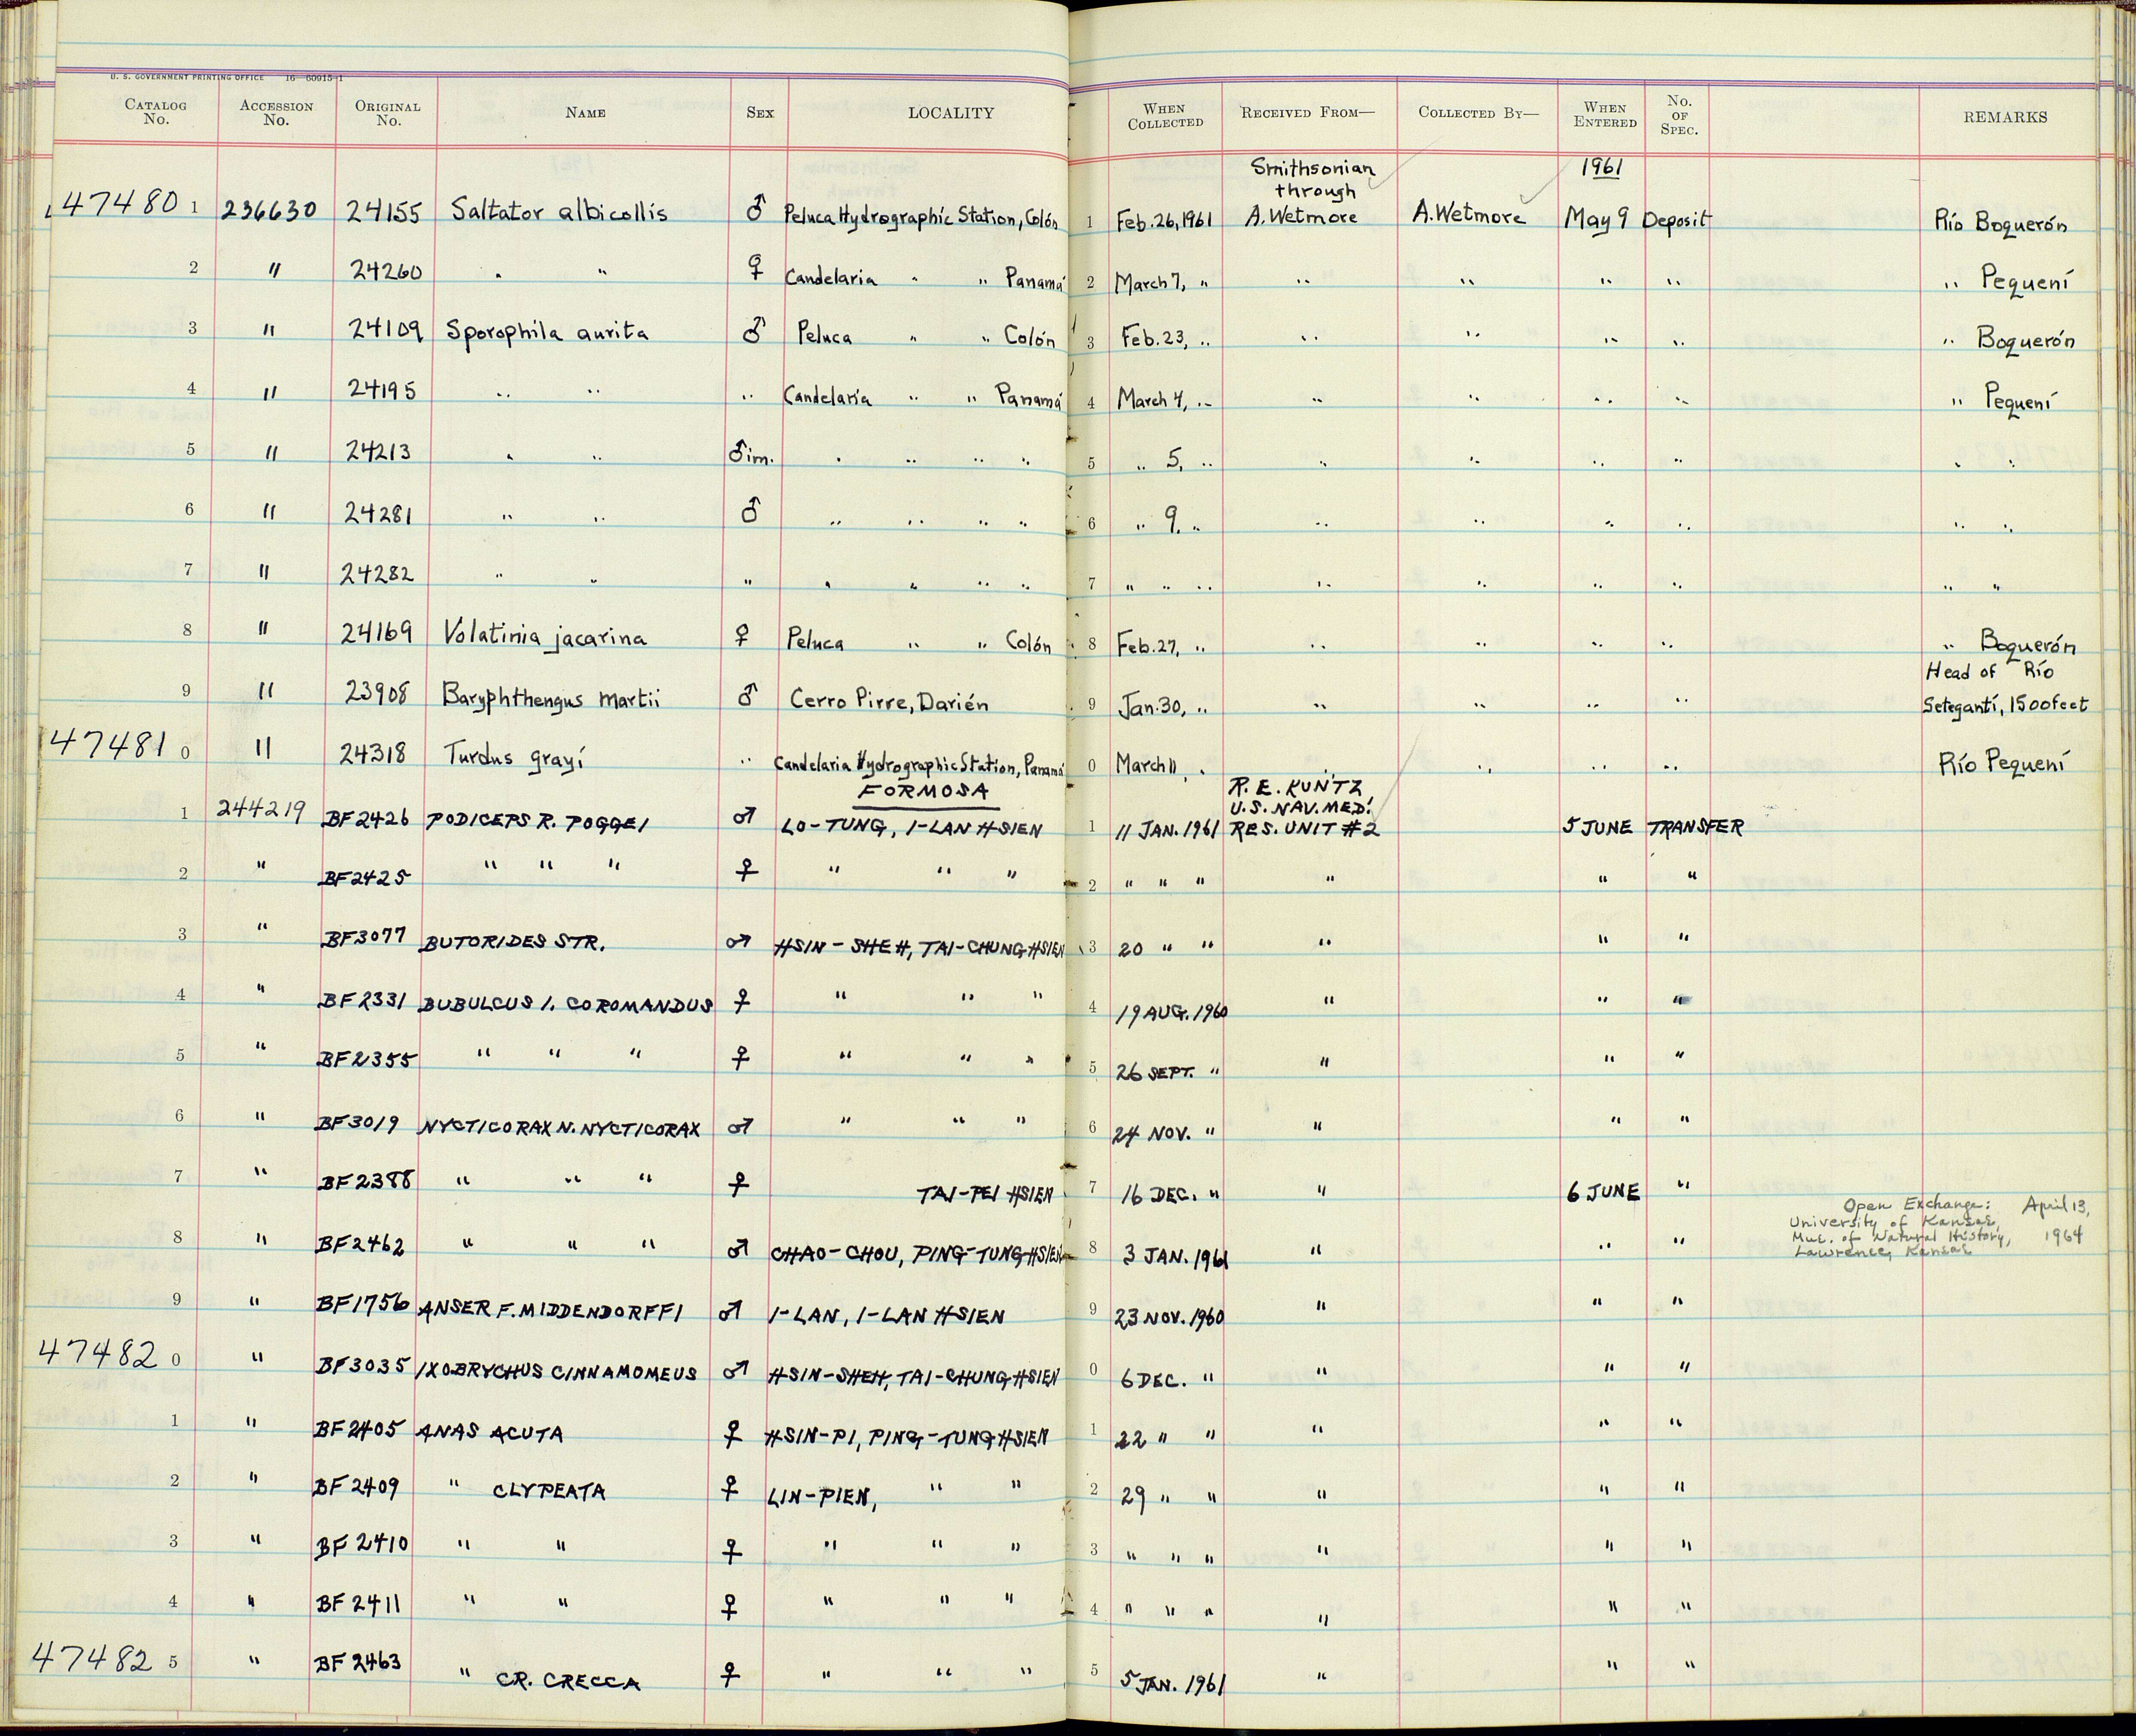 U. S. GOVERNMENT PRINTING OFFICE 16—60915-1
CATALOG No. ACCESSION No. ORIGINAL No. NAME SEX LOCALITY WHEN COLLECTED RECEIVED FROM— COLLECTED BY— WHEN ENTERED No. OF SPEC. REMARKS
Smithsonian through 1961
47480 1 236630 24155 Saltator albicollis ♂ Peluca Hydrographic Station, Colón 1 Feb. 26, 1961 A. Wetmore A. Wetmore May 9 Deposit Río Boquerón
2 " 24260 " " ♀ Candelaria " " Panamá 2 March 7, " " " " " " Pequení
3 " 24109 Sporophila aurita ♂ Peluca " " Colón 3 Feb. 23, " " " " " " Boquerón
4 " 24195 " " " Candelaria " " Panamá 4 March 4, " " " " " " Pequení
5 " 24213 " " ♂ im. " " " " 5 " 5, " " " " " " "
6 " 24281 " " ♂ " " " " 6 " 9, " " " " " " "
7 " 24282 " " " " " " " 7 " " " " " " " " "
8 " 24169 Volatinia jacarina ♀ Peluca " " Colón 8 Feb. 27, " " " " " " Boquerón
Head of Río
9 " 23908 Baryphthengus martii ♂ Cerro Pirre, Darién 9 Jan. 30, " " " " " Setegantí, 1500 feet
47481 0 " 24318 Turdus grayi " Candelaria Hydrographic Station, Panamá 0 March 11, " " " " " Río Pequení
FORMOSA R. E. KUNTZ
U.S. NAV. MED.
1 244219 BF2426 PODICEPS R. POGGEI ♂ LO-TUNG, I-LAN HSIEN 1 11 JAN. 1961 RES. UNIT #2 5 JUNE TRANSFER
2 " BF2425 " " " ♀ " " " 2 " " " " " "
3 " BF3077 BUTORIDES STR. ♂ HSIN-SHEH, TAI-CHUNG HSIEN 3 20 " " " " "
4 " BF2331 BUBULCUS I. COROMANDUS ♀ " " " 4 19 AUG. 1960 " " "
5 " BF2355 " " " ♀ " " " 5 26 SEPT. " " " "
6 " BF3019 NYCTICORAX N. NYCTICORAX ♂ " " " 6 24 NOV. " " " "
7 " BF2388 " " " ♀ TAI-PEI HSIEN 7 16 DEC. " " 6 JUNE "
8 " BF2462 " " " ♂ CHAO-CHOU, PING-TUNG HSIEN 8 3 JAN. 1961 " " "
Open Exchange: April 13,
University of Kansas,
Mus. of Natural History, 1964
Lawrence, Kansas
9 " BF1756 ANSER F. MIDDENDORFFI ♂ I-LAN, I-LAN HSIEN 9 23 NOV. 1960 " " "
47482 0 " BF3035 IXOBRYCHUS CINNAMOMEUS ♂ HSIN-SHEH, TAI-CHUNG HSIEN 0 6 DEC. " " " "
1 " BF2405 ANAS ACUTA ♀ HSIN-PI, PING-TUNG HSIEN 1 22 " " " " "
2 " BF2409 " CLYPEATA ♀ LIN-PIEN, " " 2 29 " " " " "
3 " BF2410 " " ♀ " " " 3 " " " " " "
4 " BF2411 " " ♀ " " " 4 " " " " " "
47482 5 " BF2463 " CR. CRECCA ♀ " " " 5 5 JAN. 1961 " " "